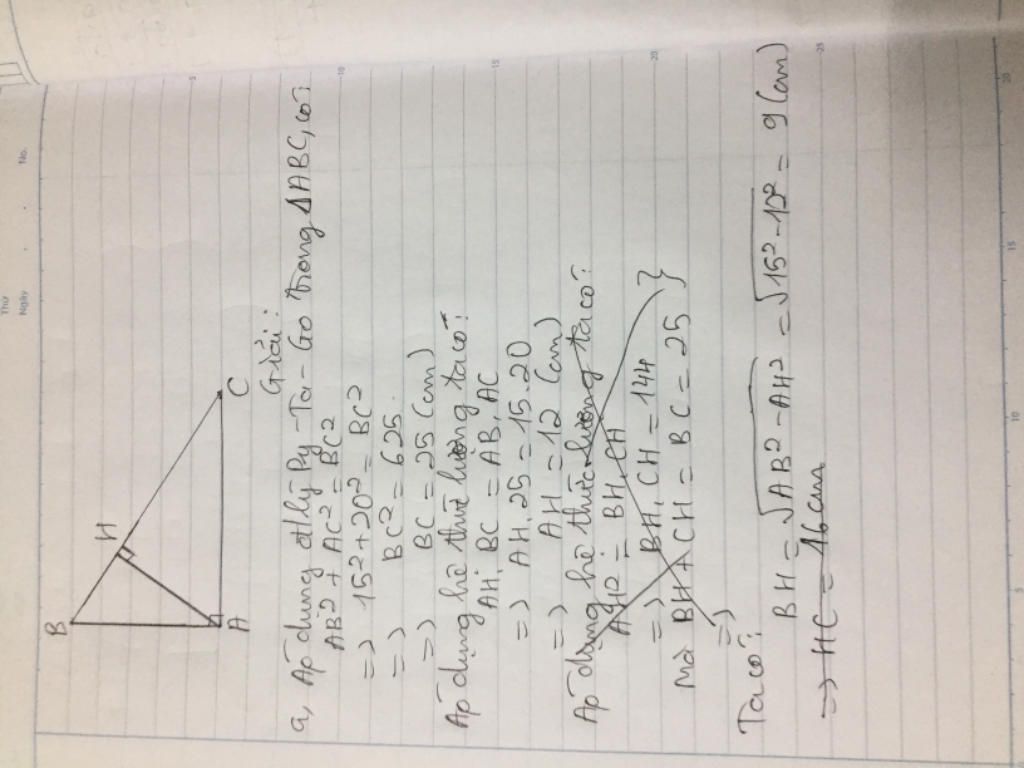 Thứ
Ngày
No.
B
H
A
C
Giải:
a, Áp dụng đlý Py-Ta-Go trong ΔABC, có:
AB² + AC² = BC²
=> 15² + 20² = BC²
=> BC² = 625.
=> BC = 25 (cm)
Áp dụng hệ thức lượng ta có:
AH. BC = AB. AC
=> AH. 25 = 15. 20
=> AH = 12 (cm)
Áp dụng hệ thức lượng ta có:
AH² = BH. CH
=> BH. CH = 144 }
Mà BH + CH = BC = 25 }
=>
Ta có:
BH = √AB² - AH² = √15² - 12² = 9 (cm)
=> HC = 16cm
5
10
15
20
25
5
10
15
20